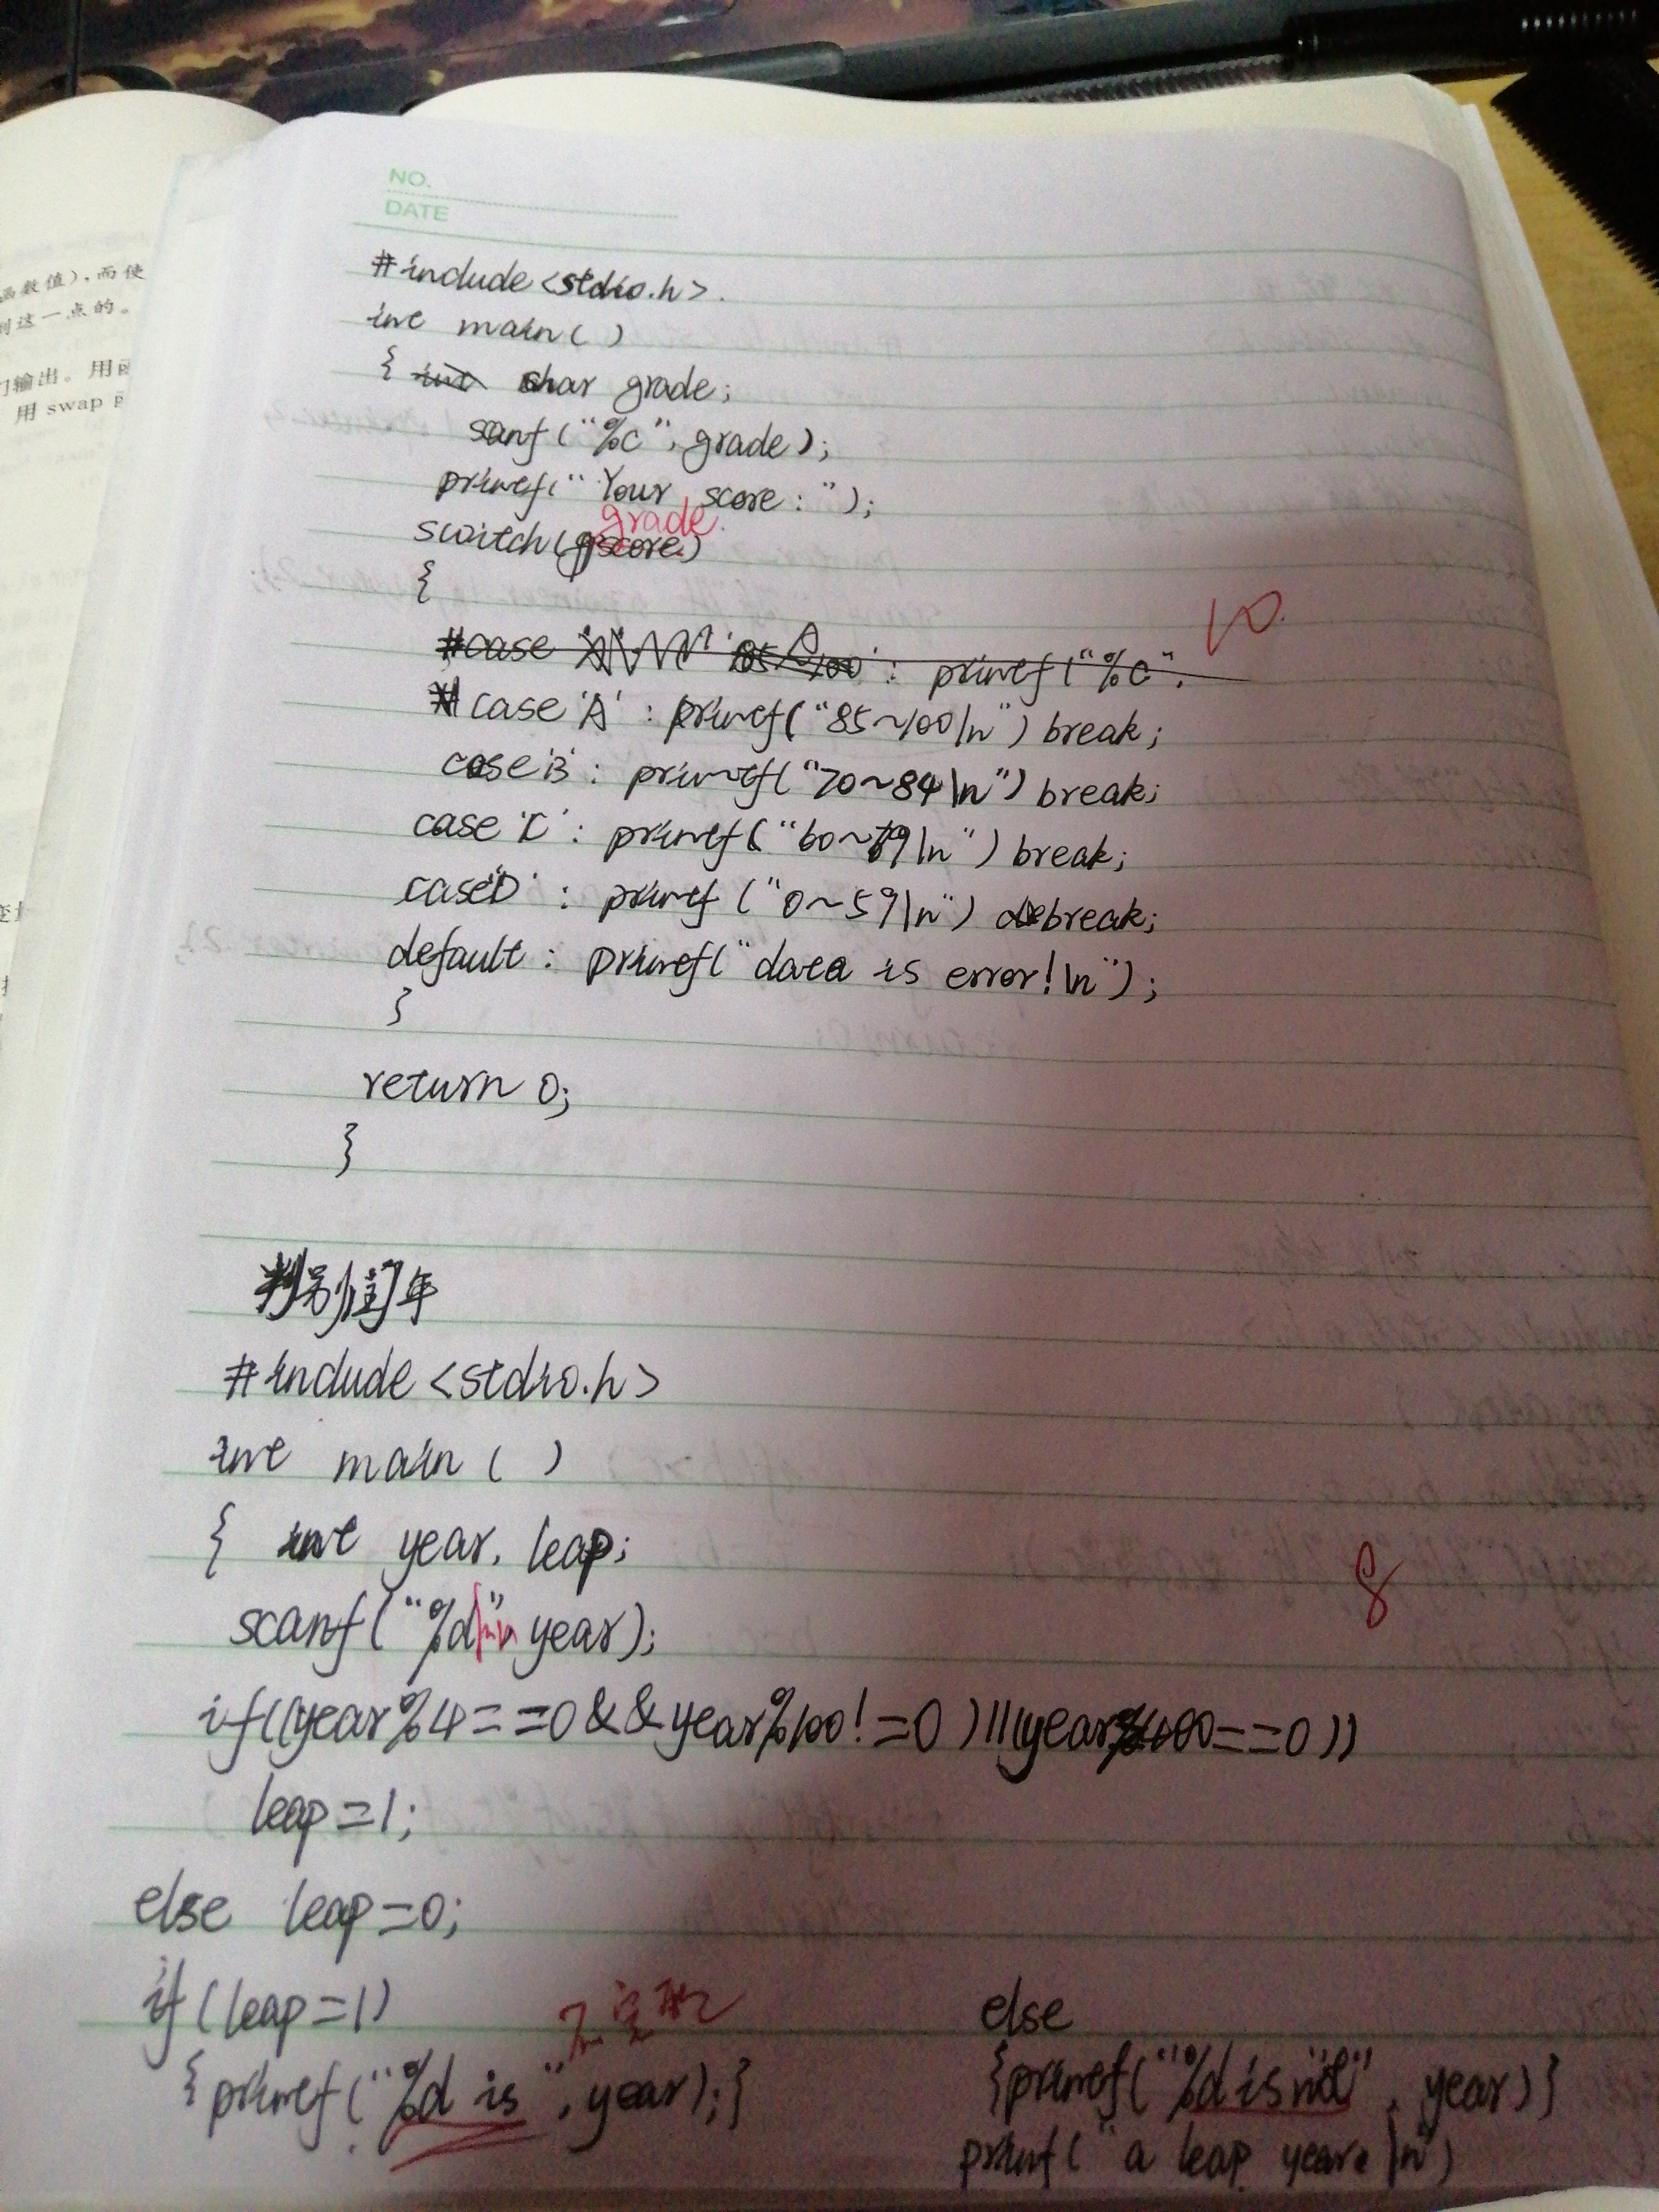 函数值),而使
到这一点的。
们输出。用函
用 swap 函
NO.
DATE
#include<stdio.h>.
int main()
{ int char grade;
scanf("%c", grade);
printf("Your score: ");
grade.
switch(gscore)
{
#case 85~100 : printf("%c".
10
case 'A' : printf("85~100\n") break;
case 'B' : printf("70~84\n") break;
case 'C' : printf("60~69\n") break;
case 'D' : printf("0~59\n") break;
default : printf("data is error!\n");
}
return 0;
}
判别闰年
#include<stdio.h>
int main()
{ int year, leap;
scanf("%d", year);
8
if((year%4==0&&year%100!=0)||(year%400==0))
leap=1;
else leap=0;
if(leap=1)
{printf("%d is", year);}
else
{printf("%d is not", year)}
printf("a leap year.\n")